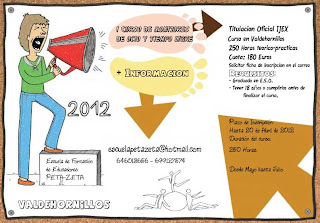 I CURSO DE MONITORES
DE OCIO Y TIEMPO LIBRE
+ INFORMACION
2012
escuelapetazeta@hotmail.com
Escuela de Formación
de Educadores
PETA-ZETA
VALDEHORNILLOS
Titulacion Oficial IJEX
Curso en Valdehornillos
250 Horas teorico-practicas
Cuota: 180 Euros
Solicitar ficha de inscripcion en el correo
REQUISITOS:
- Graduado en E.S.O.
- Tener 18 años o cumplirlos antes de
finalizar el curso.
Plazo de Inscripción
Hasta 20 de Abril de 2012
Duración del curso:
250 Horas
Desde Mayo hasta Julio